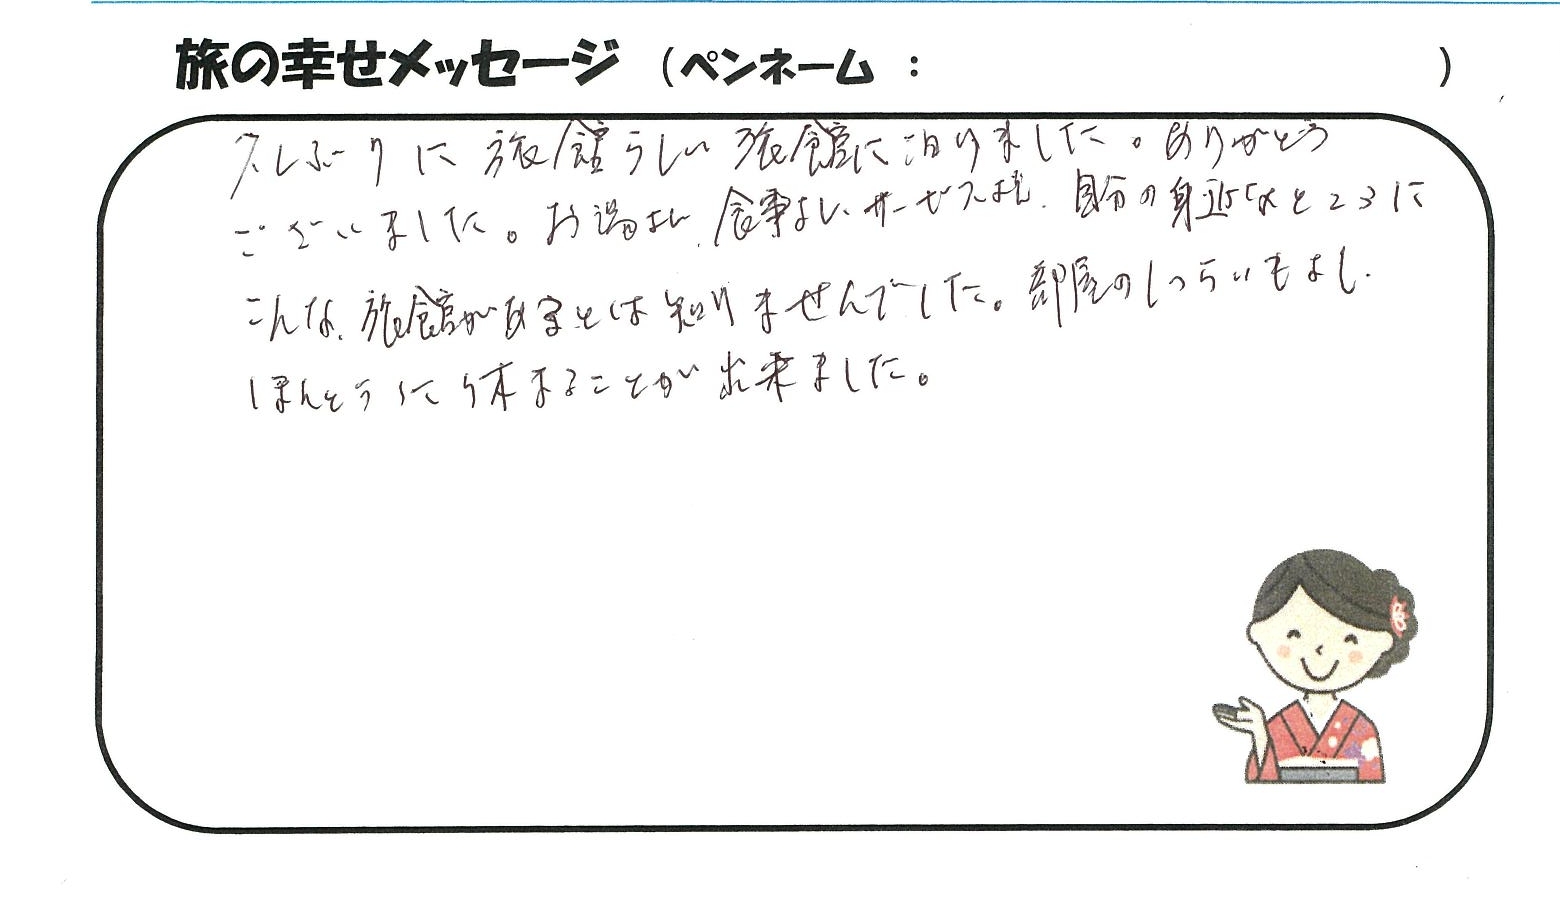 旅の幸せメッセージ （ペンネーム ： ）
久しぶりに旅館らしい旅館に泊りました。ありがとう
ございました。お湯よし、食事よし、サービスよし、自分の身近なところに
こんな、旅館があるとは知りませんでした。部屋のしつらいもよし、
ほんとうに休まることが出来ました。